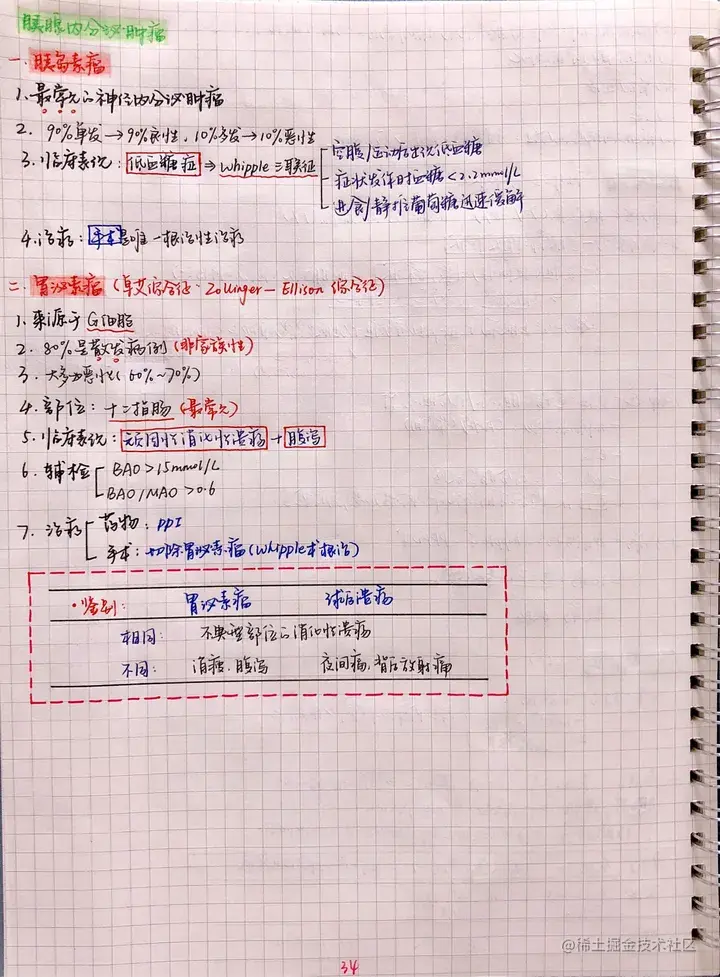 胰腺内分泌肿瘤
一. 胰岛素瘤
1. 最常见的神经内分泌肿瘤
2. 90%单发→90%良性, 10%多发→10%恶性
3. 临床表现: 低血糖症 ⇒ whipple三联征
空腹/运动后出现低血糖
症状发作时血糖<2.2mmol/L
进食/静推葡萄糖迅速缓解
4. 治疗: 手术是唯一根治性治疗
二. 胃泌素瘤 (卓艾综合征·Zollinger-Ellison综合征)
1. 来源于G细胞
2. 80%是散发病例 (非家族性)
3. 大多为恶性 (60%~70%)
4. 部位: 十二指肠 (最常见)
5. 临床表现: 顽固性消化性溃疡 + 腹泻
6. 辅检
BAO>15mmol/L
BAO/MAO>0.6
7. 治疗
药物: PPI
手术: 切除胃泌素瘤 (whipple术根治)
·鉴别: 胃泌素瘤 球后溃疡
相同: 不典型部位的消化性溃疡
不同: 消瘦.腹泻 夜间痛.背后放射痛
34
@稀土掘金技术社区